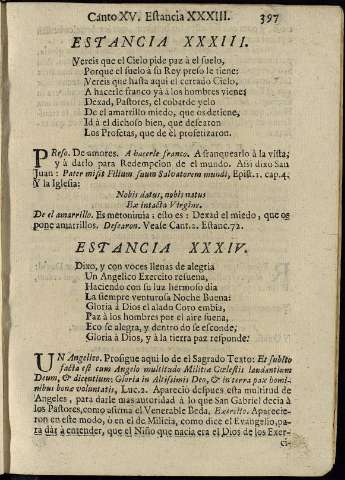 Canto XV. Estancia XXXIII. 397
ESTANCIA XXXIII.
Vereis que el Cielo pide paz à el suelo,
Porque el suelo à su Rey preso le tiene:
Vereis que hasta aqui el cerrado Cielo,
A hacerle franco yà à los hombres viene:
Dexad, Pastores, el cobarde yelo
De el amarillo miedo, que os detiene,
Id à el dichoso bien, que desearon
Los Profetas, que de èl profetizaron.
PReso. De amores. A hacerle franco. A franquearlo à la vista;
y à darlo para Redempcion de el mundo. Assi dixo San
Juan: Pater misit Filium suum Salvatorem mundi, Epist. 1. cap. 4.
Y la Iglesia:
Nobis datus, nobis natus
Ex intacta Virgine.
De el amarillo. Es metonimia: esto es: Dexad el miedo, que os
pone amarillos. Desearon. Vease Cant. 2. Estanc. 72.
ESTANCIA XXXIV.
Dixo, y con voces llenas de alegria
Un Angelico Exercito resuena,
Haciendo con su luz hermoso dia
La siempre venturosa Noche Buena:
Gloria à Dios el alado Coro embia,
Paz à los hombres por el aire suena,
Eco se alegra, y dentro do se esconde,
Gloria à Dios, y à la tierra paz responde.
UN Angelico. Prosigue aqui lo de el Sagrado Texto: Et subito
facta est cum Angelo multitudo Militiæ Cœlestis laudantium
Deum, & dicentium: Gloria in Altissimis Deo, & in terra pax homi-
nibus bonæ voluntatis, Luc. 2. Aparecio despues esta multitud de
Angeles, para darle mas autoridad à lo que San Gabriel decia à
los Pastores, como afirma el Venerable Beda. Exercito. Aparecie-
ron en este modo, ò en el de Milicia, como dice el Evangelio, pa-
ra dàr à entender, que el Niño que nacia era el Dios de los Exer-
ci-